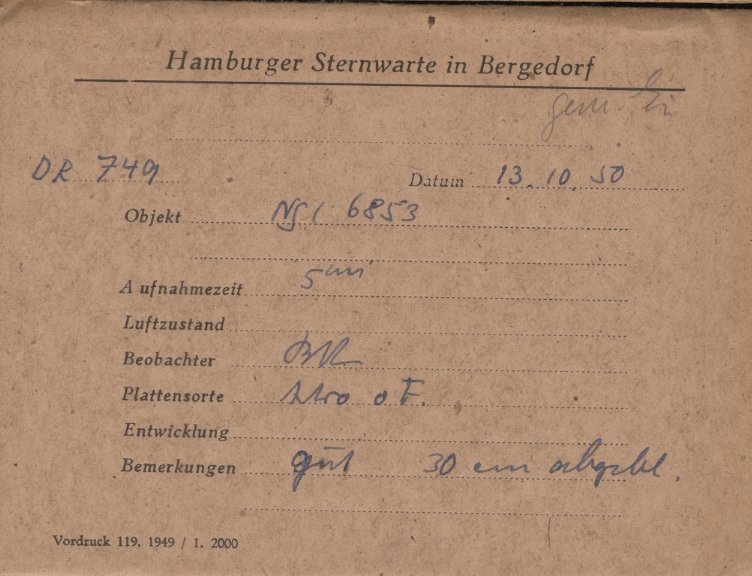 Hamburger Sternwarte in Bergedorf
gem.
DR 749
Datum 13.10.50
Objekt NGC 6853
Aufnahmezeit 5 min
Luftzustand
Beobachter
Plattensorte Astro o F.
Entwicklung
Bemerkungen gut 30 cm abgebl.
Vordruck 119. 1949 / 1. 2000